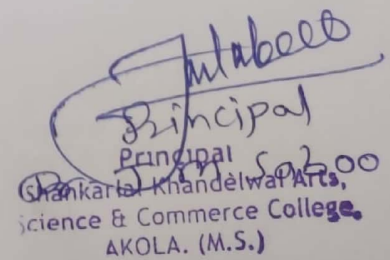 Principal
Principal
Shankarlal Khandelwal Arts,
Science & Commerce College,
AKOLA. (M.S.)